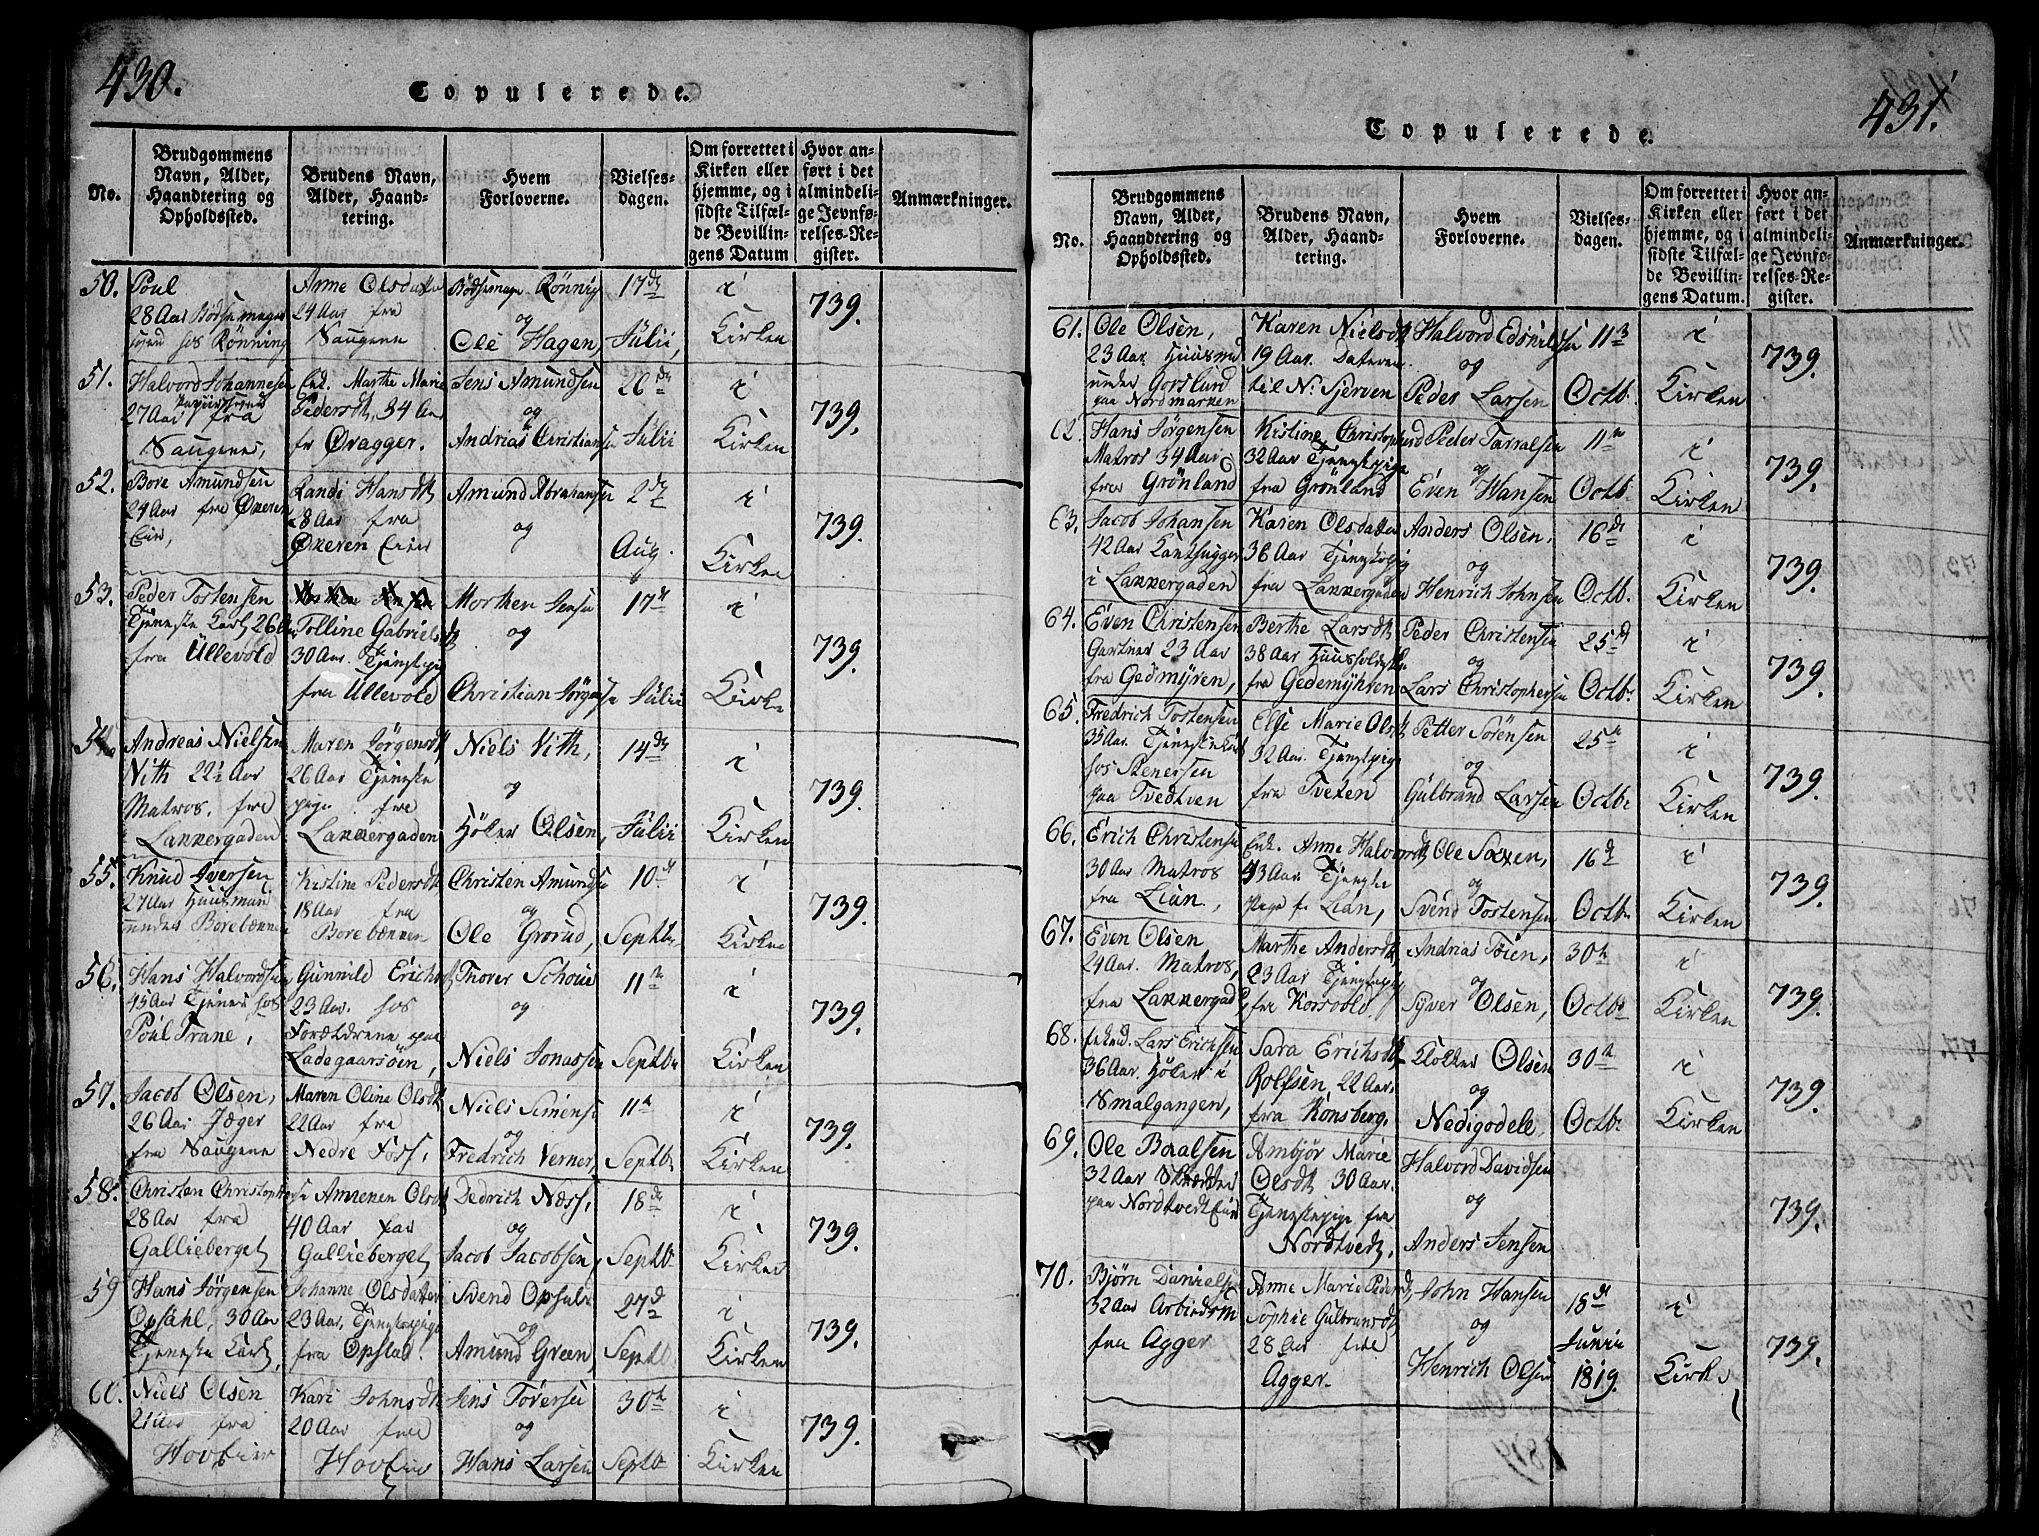 430.
Copulerede.
No.
Brudgommens
Navn, Alder,
Haandtering og
Opholdssted.
Brudens Navn,
Alder, Haand-
tering.
Hvem
Forloverne.
Vielses-
dagen.
Om forrettet i
Kirken eller
hjemme, og i
sidste Tilfæl-
de Bevillin-
gens Datum
Hvor an-
ført i det
almindeli-
ge Jevnfø-
relses-Re-
gister.
Anmærkninger.
50.
Poul
28 Aar
hos Rønning
Anne Olsdatter
24 Aar fra
Saugene
Rønning
og
Ole Hagen,
17de
Julii,
i
Kirken
739.
51.
Halvord Johannesen
27 Aar fra
Saugene,
Enk. Marthe Marie
Pedersdt, 34 Aar
fr Qvagger.
Jens Amundsen
og
Andrias Christians
26de
Julii
i
Kirken
739.
52.
Bore Amundsen
24 Aar fra Økeren
Eier,
Randi Hansdt
28 Aar fra
Økeren Eier
Amund Abrahamsen
og
2de
Aug.
i
Kirken
739.
53.
Peder Tostensen
Tjeneste Karl, 26 Aar
fra Ullevold
Tolline Gabrielsdt
30 Aar. Tjenstepige
fra Ullevold
Morthen Jensen
og
Christian Jørgensen
17de
Julii
i
Kirke
739.
54.
Andreas Nielsen
Vith 22½ Aar
Matros, fra
Lakkergaden
Maren Jørgensdt
26 Aar Tjeneste
pige fra
Lakkergaden
Niels Vith,
og
Høker Olsen,
14de
Julii
i
Kirken
739.
55.
Knud Iversen
27 Aar Huusmand
under Borebækken
Kristine Pedersdt
18 Aar fra
Borebækken
Christen Amundsen
og
Ole Grorud,
10de
Septbr
i
Kirken
739.
56.
Hans Halvordsen
45 Aar Tjener hos
Poul Trane,
Gunnild Erichsdt
23 Aar. hos
Forældrene paa
Ladegaarsøen,
Thorer Schoue
og
Niels Jonassen
11te
Septbr
i
Kirken
739.
57.
Jacob Olsen,
26 Aar Jæger
fra Saugene
Maren Oline Olsdt
22 Aar fra
Nedre Fors,
Niels Simensen
og
Fredrich Verner,
11te
Septbr
i
Kirken
739.
58.
Christen Christophersen
28 Aar fra
Gallieberget
Annenen Olsdt
40 Aar paa
Gallieberget,
Dedrich Næss,
og
Jacob Jacobsen,
18de
Septbr
i
Kirken
739.
59
Hans Jørgensen
Opsahl, 30 Aar
Tjeneste Karl,
Johanne Olsdatter
23 Aar, Tjenstepige
fra Opsal.
Svend Opsahl
og
Amund Green,
27de
Septb
i
Kirken
739.
60.
Niels Olsen
21 Aar fra
Hov Eier
Kari Johnsdt
20 Aar fra
Hov Eier
Jens Toversen
og
Hans Larsen
30te
Septbr
i
Kirken
739.
431.
Copulerede.
No.
Brudgommens
Navn, Alder,
Haandtering og
Opholdssted.
Brudens Navn,
Alder, Haand-
tering.
Hvem
Forloverne.
Vielses-
dagen.
Om forrettet i
Kirken eller
hjemme, og i
sidste Tilfæl-
de Bevillin-
gens Datum.
Hvor an-
ført i det
almindeli-
ge Jevnfø-
relses-Re-
gister.
Anmærkninger.
61.
Ole Olsen,
23 Aar Huusmd
under
paa Nordmarken
Karen Nielsdt
19 Aar. Datter
til N. Sjerven
Halvord
og
Peder Larsen
11te
Octb.
i
Kirken
739.
62.
Hans Jørgensen
Matros 34 Aar
fra Grønland
Kistine Christophersd
32 Aar Tjenstepige
fra Grønland
Peder Tarralsen
og
Even Hansen
11te
Octb.
i
Kirken
739.
63.
Jacob Johansen
42 Aar Kanthugger
i Lakkergaden
Karen Olsdatter
36 Aar Tjenstepig
fra Lakkergaden
Anders Olsen,
og
Henrich Johnsen
16de
Octb.
i
Kirken
739.
64.
Even Christensen
Gartner 23 Aar
fra Gedmyren,
Berthe Larsdt
38 Aar
fra Gedemyhren
Peder Christensen
og
Lars Christophersen
25de
Octbr
i
Kirken
739.
65.
Fredrich Tostensen
35 Aar. Tjeneste Karl
hos Stenersen
paa Tvedtven
Else Marie Olsdt
32 Aar. Tjenstepige
fra Tveten
Petter Sørensen
og
Gulbrand Larsen
25de
Octbr
i
Kirken
739.
66.
Erich Christensen
30 Aar Matros
fra Lian,
Enk. Anne Halvorsdt
43 Aar. Tjeneste
Pige fr Lian,
Ole Saxen,
og
Svend Tostensen
16de
Octbr
i
Kirken
739.
67.
Even Olsen
24 Aar. Matros,
fra Lakkergad
Marthe Andersdt
23 Aar Tjenstepige
fra Korsvold.
Andrias Toien,
og
Syver Olsen,
30te
Octbr
i
Kirken
739.
68.
Lars Erichsen
36 Aar. Høker i
Smalgangen,
Sara Erichsdt
Rolfsen, 22 Aar.
fra Konsberg.
Klokker Olsen
og
Nedigodele,
30te
Octbr
i
Kirken
739.
69.
Ole Baalsen
32 Aar Skrædder
paa Nordtvedt Eier
Ambjør Marie
Olsdt 30 Aar.
Tjenestepige fra
Nordtvedt,
Halvord Davidsen
og
Anders Jensen
739.
70.
Bjørn Danielsen
32 Aar Arbiedsm
fra Agger
Anne Marie Pedersdt,
Sophie Gulbransdt
28 Aar fra
Agger.
John Hansen
og
Henrich Olsen
18de
Junii
1819.
i
Kirke
739.
1819